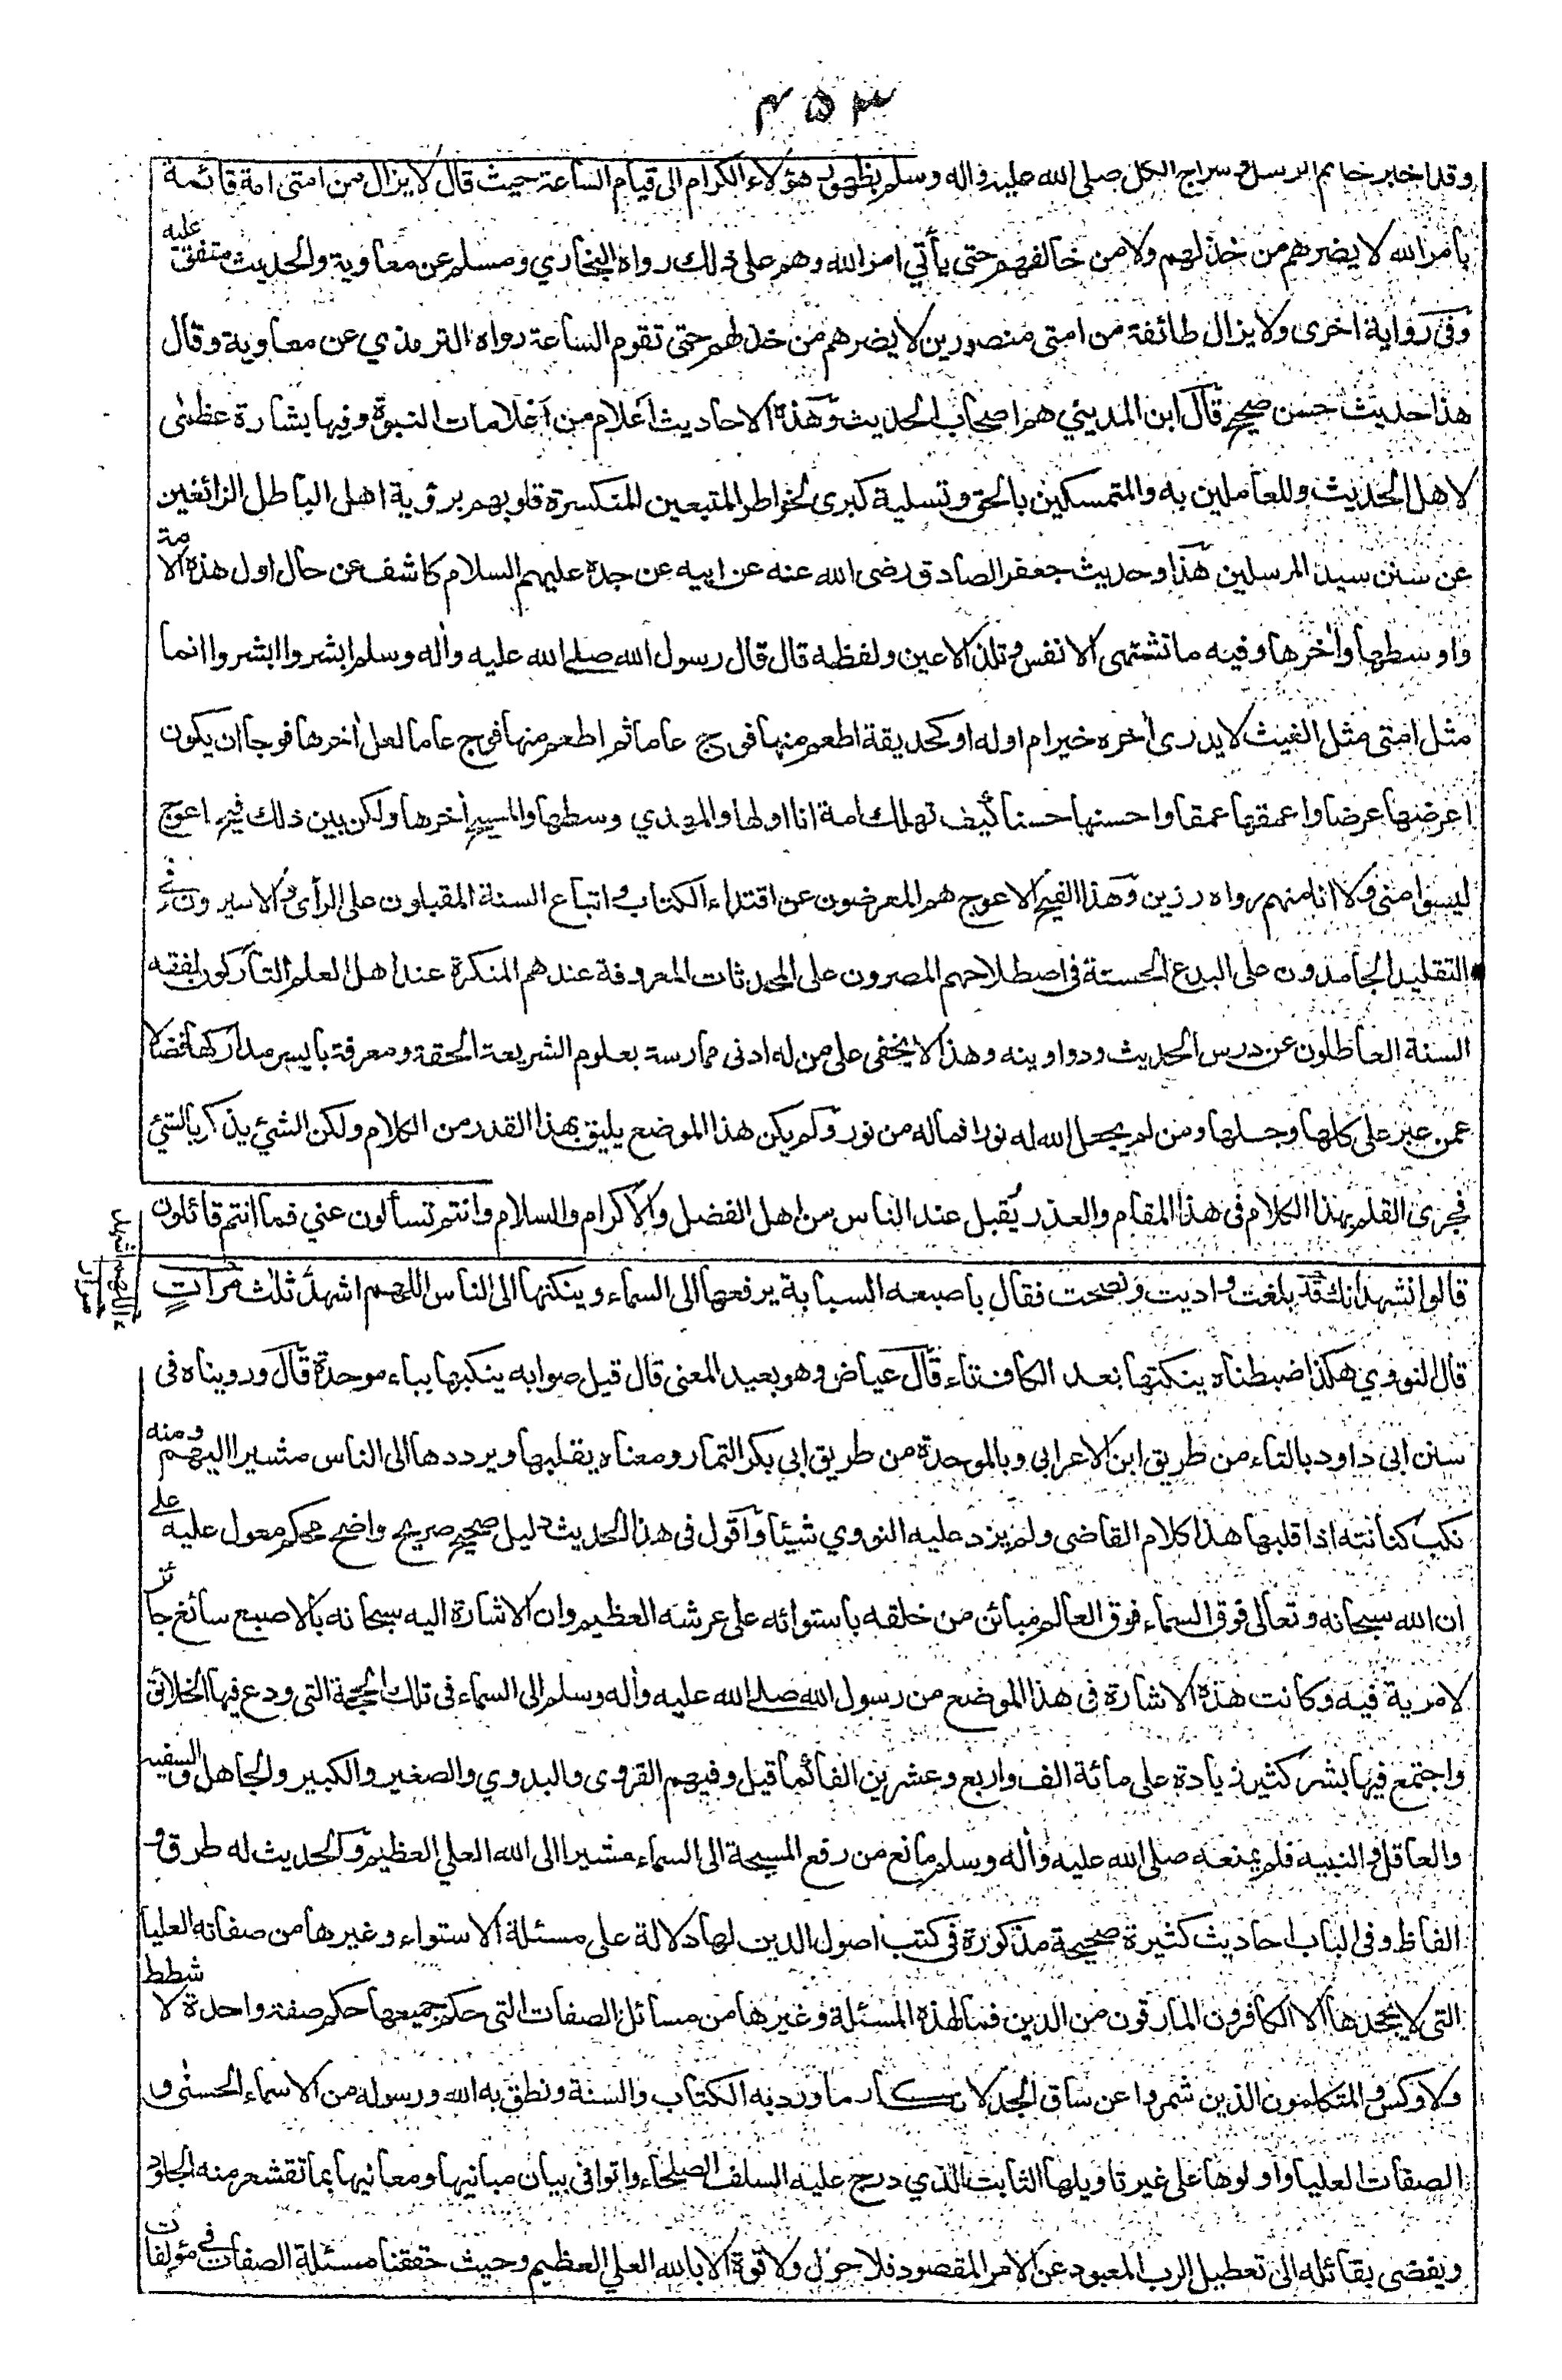 ٤٥٣
وقد اخبر خاتم الرسل وسراج الكل صلى الله عليه واله وسلم بظهور هؤلاء الكرام الى قيام الساعة حيث قال لا يزال من امتى امة قائمة
بامر الله لا يضرهم من خذلهم ولا من خالفهم حتى يأتي امر الله وهم على ذلك رواه البخاري ومسلم عن معاوية والحديث متفق عليه
وفى رواية اخرى ولا يزال طائفة من امتى منصورين لا يضرهم من خذلهم حتى تقوم الساعة رواه الترمذي عن معاوية وقال
هذا حديث حسن صحيح قال ابن المديني هم اصحاب الحديث وهذه الاحاديث اعلام من اعلامات النبوة وفيها بشارة عظمى
لاهل الحديث وللعاملين به والمتمسكين بالحق وتسلية كبرى لخواطر المتبعين المنكسرة قلوبهم برؤية اهل الباطل الزائغين
عن سنن سيد المرسلين هذا وحديث جعفر الصادق رضى الله عنه عن ابيه عن جده عليهم السلام كاشف عن حال اول هذه الامة
واوسطها وأخرها وفيه ما تشتهى الانفس وتلذ الاعين ولفظه قال قال رسول الله صلى الله عليه وأله وسلم ابشروا ابشروا انما
مثل امتى مثل الغيث لا يدرى أخره خير ام اوله او كحديقة اطعم منها فوج عاما ثم اطعم منها فوج عاما لعل أخرها فوجا ان يكون
اعرضها عرضا واعمقها عمقا واحسنها حسنا كيف تهلك امة انا اولها والمهدي وسطها والمسيح أخرها ولكن بين ذلك فيج اعوج
ليسوا منى ولا انا منهم رواه رزين وهذا الفيج الاعوج هم المعرضون عن اقتداء الكتاب واتباع السنة المقبلون على الرأى والاسيرون في
التقليد الجامدون على البدع الحسنة فى اصطلاحهم المصرون على المحدثات المعروفة عندهم المنكرة عند اهل العلم التاركون لفقه
السنة العاطلون عن درس الحديث ودواوينه وهذا لا يخفى على من له ادنى ممارسة بعلوم الشريعة الحقة ومعرفة بايسر مداركها فضلا
عمن عبر على كلها وجلها ومن لم يجعل الله له نورا فما له من نور ولم يكن هذا الموضع يليق بهذا القدر من الكلام ولكن الشئ يذكر بالشئ
فجرى القلم بهذا الكلام فى هذا المقام والعذر يقبل عند الناس من اهل الفضل والاكرام والسلام وانتم تسألون عني فما انتم قائلون
قالوا نشهد انك قد بلغت واديت ونصحت فقال باصبعه السبابة يرفعها الى السماء وينكتها الى الناس اللهم اشهد ثلاث مرات
اللهم اشهد
قال النووي هكذا ضبطناه ينكتها بعد الكاف تاء قال عياض وهو بعيد المعنى قال قيل صوابه ينكبها بباء موحدة قال ورويناه فى
سنن ابى داود بالتاء من طريق ابن الاعرابى وبالموحدة من طريق ابى بكر التمار ومعناه يقلبها ويرددها الى الناس مشيرا اليهم ومنه
نكب كنانته اذا قلبها هذا كلام القاضى ولم يزد عليه النووي شيئا وأقول فى هذا الحديث دليل صحيح صريح واضح محكم معول عليه على
ان الله سبحانه وتعالى فوق السماء فوق العالم مبائن من خلقه باستوائه على عرشه العظيم وان الاشارة اليه سبحانه بالاصبع سائغ جائز
لا مرية فيه وكانت هذه الاشارة فى هذا الموضع من رسول الله صلى الله عليه وأله وسلم الى السماء فى تلك الحجة التى ودع فيها الخلائق
واجتمع فيها بشر كثير زيادة على مائة الف واربع وعشرين الفا كما قيل وفيهم القروى والبدوي والصغير والكبير والجاهل والسفيه
والعاقل والنبيه فلم يمنعه صلى الله عليه وأله وسلم مانع من رفع المسبحة الى السماء مشيرا الى الله العلي العظيم والحديث له طرق و
الفاظ وفى الباب احاديث كثيرة صحيحة مذكورة فى كتب اصول الدين لها دلالة على مسئلة الاستواء وغيرها من صفاته العليا
التى لا يجحدها الا الكافرون المارقون من الدين فما لهذه المسئلة وغيرها من مسائل الصفات التى حكم جميعها حكم صفة واحدة لا شطط
ولا وكس والمتكلمون الذين شمروا عن ساق الجد لانكار ما ورد به الكتاب والسنة ونطق به الله ورسوله من الاسماء الحسنى و
الصفات العليا واولوها على غير تاويلها الثابت الذي درج عليه السلف الصلحاء واتوا فى بيان مبانيها ومعانيها بما تقشعر منه الجلود
ويفضى بقائله الى تعطيل الرب المعبود عن الامر المقصود فلا حول ولا قوة الا بالله العلي العظيم وحيث حققنا مسئلة الصفات في مؤلفات